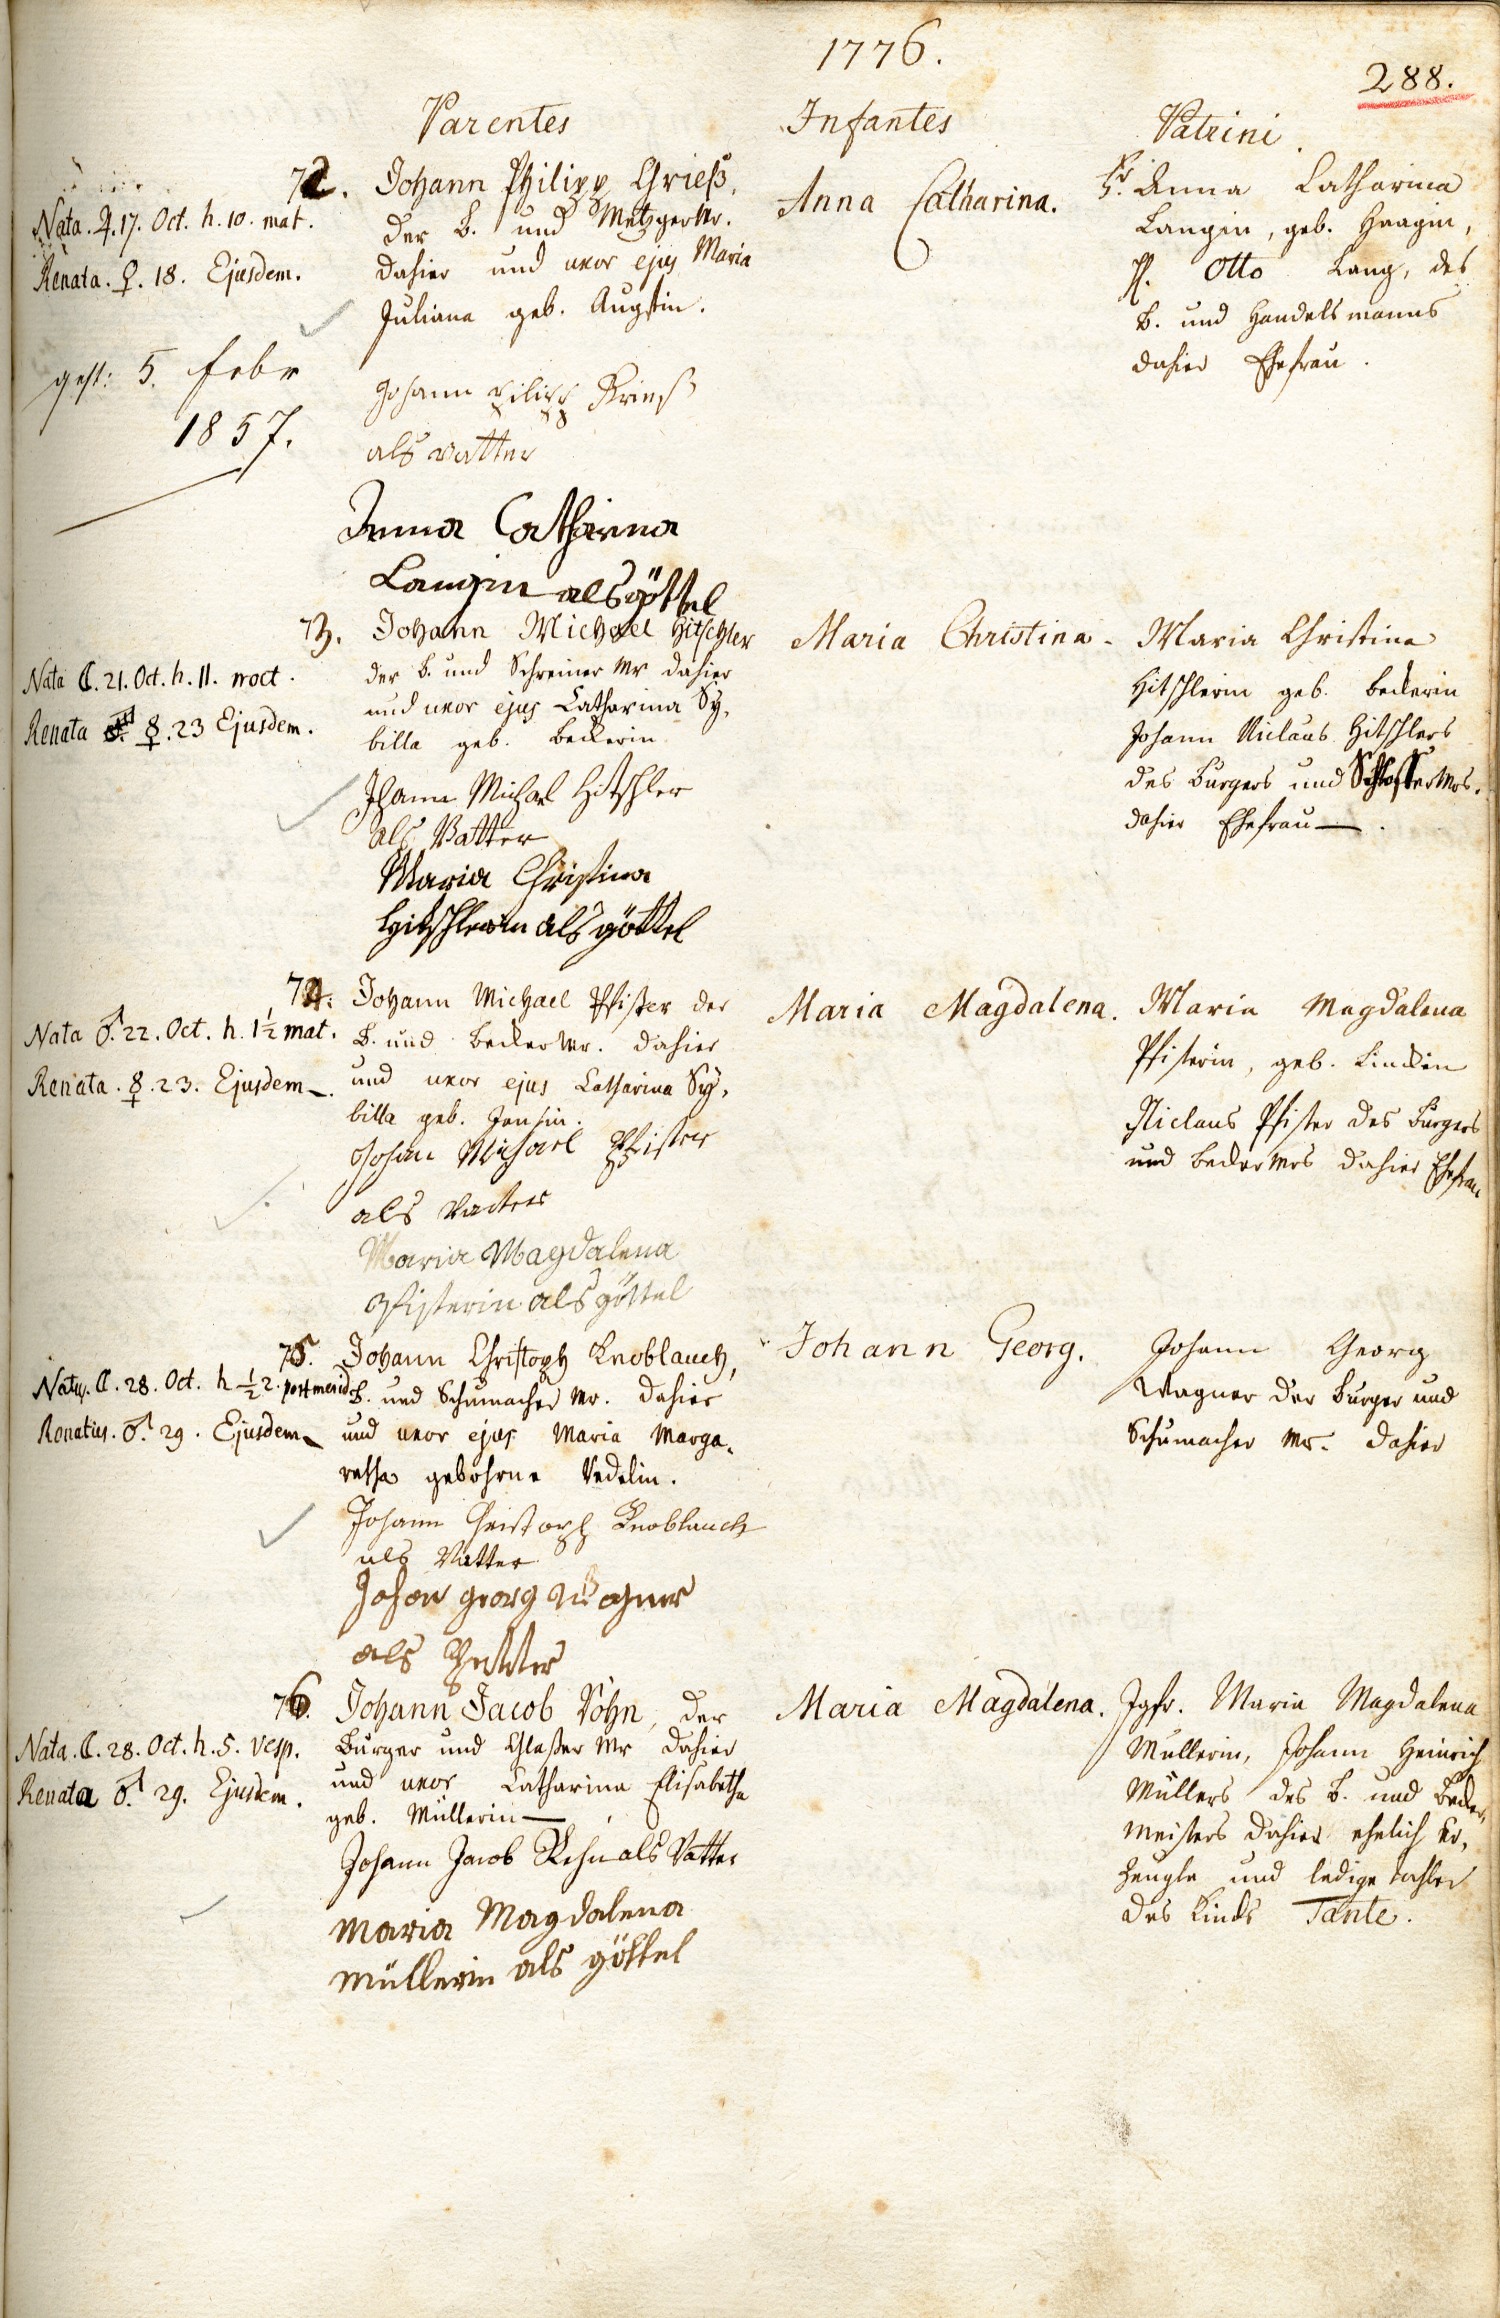 1776.
288.
Parentes
Infantes
Patrini.
72.
Nata. ♃. 17. Oct. h. 10. mat.
Renata. ♀. 18. Ejusdem.
gest: 5. Febr
1857.
Johann Philipp Grieß,
der B. und Metzger Mr.
dahier und uxor ejus Maria
Juliana geb. Augstin.
Johann Filipp Krieß
als vatter
Anna Catharina
Langin als göttel
Anna Catharina.
Fr. Anna Catharina
Langin, geb. Haagin,
H. Otto Lang, des
B. und Handelsmanns
dahier Ehefrau.
73.
Nata ☾. 21. Oct. h. 11. noct.
Renata ☿. 23 Ejusdem.
Johann Michael Hitschler
der B. und Schreiner Mr dahier
und uxor ejus Catharina Sy-
billa geb. Beckerin
Jhann Michael Hitschler
als Vatter
Maria Christina
Hitschlerin als göttel
Maria Christina.
Maria Christina
Hitschlerin geb. Beckerin
Johann Niclaus Hitschlers
des Burgers und Schlosser Mrs.
dahier Ehefrau.
74.
Nata ♂. 22. Oct. h. 1½ mat.
Renata. ☿. 23. Ejusdem.
Johann Michael Pfister der
B. und Becker Mr. dahier
und uxor ejus Catharina Sy-
billa geb.
Johann Michael Pfister
als Vatter
Maria Magdalena
Pfisterin als göttel
Maria Magdalena.
Maria Magdalena
Pfisterin, geb.
Niclaus Pfister des Burgers
und Becker Mrs dahier Ehefrau
75.
Natus. ☾. 28. Oct. h ½ 2. post merid.
Renatus. ♂. 29. Ejusdem
Johann Christoph Knoblauch,
B. und Schumacher Mr. dahier
und uxor ejus Maria Marga-
retha gebohrne Vedelin.
Johann Christoph Knoblauch
als Vatter
Johan georg Wagner
als Petter
Johann Georg.
Johann Georg
Wagner der Burger und
Schumacher Mr. dahier
76.
Nata. ☾. 28. Oct. h. 5. vesp.
Renata ♂. 29. Ejusdem.
Johann Jacob Röhn, der
Burger und Glaßer Mr dahier
und uxor Catharina Elisabetha
geb. Müllerin
Johann Jacob Rehn als Vatter
Maria Magdalena
Müllerin als göttel
Maria Magdalena.
Jgfr. Maria Magdalena
Müllerin, Johann Heinrich
Müllers des B. und Becker-
meisters dahier ehelich er-
zeugte und ledige tochter
des Kinds Tante.